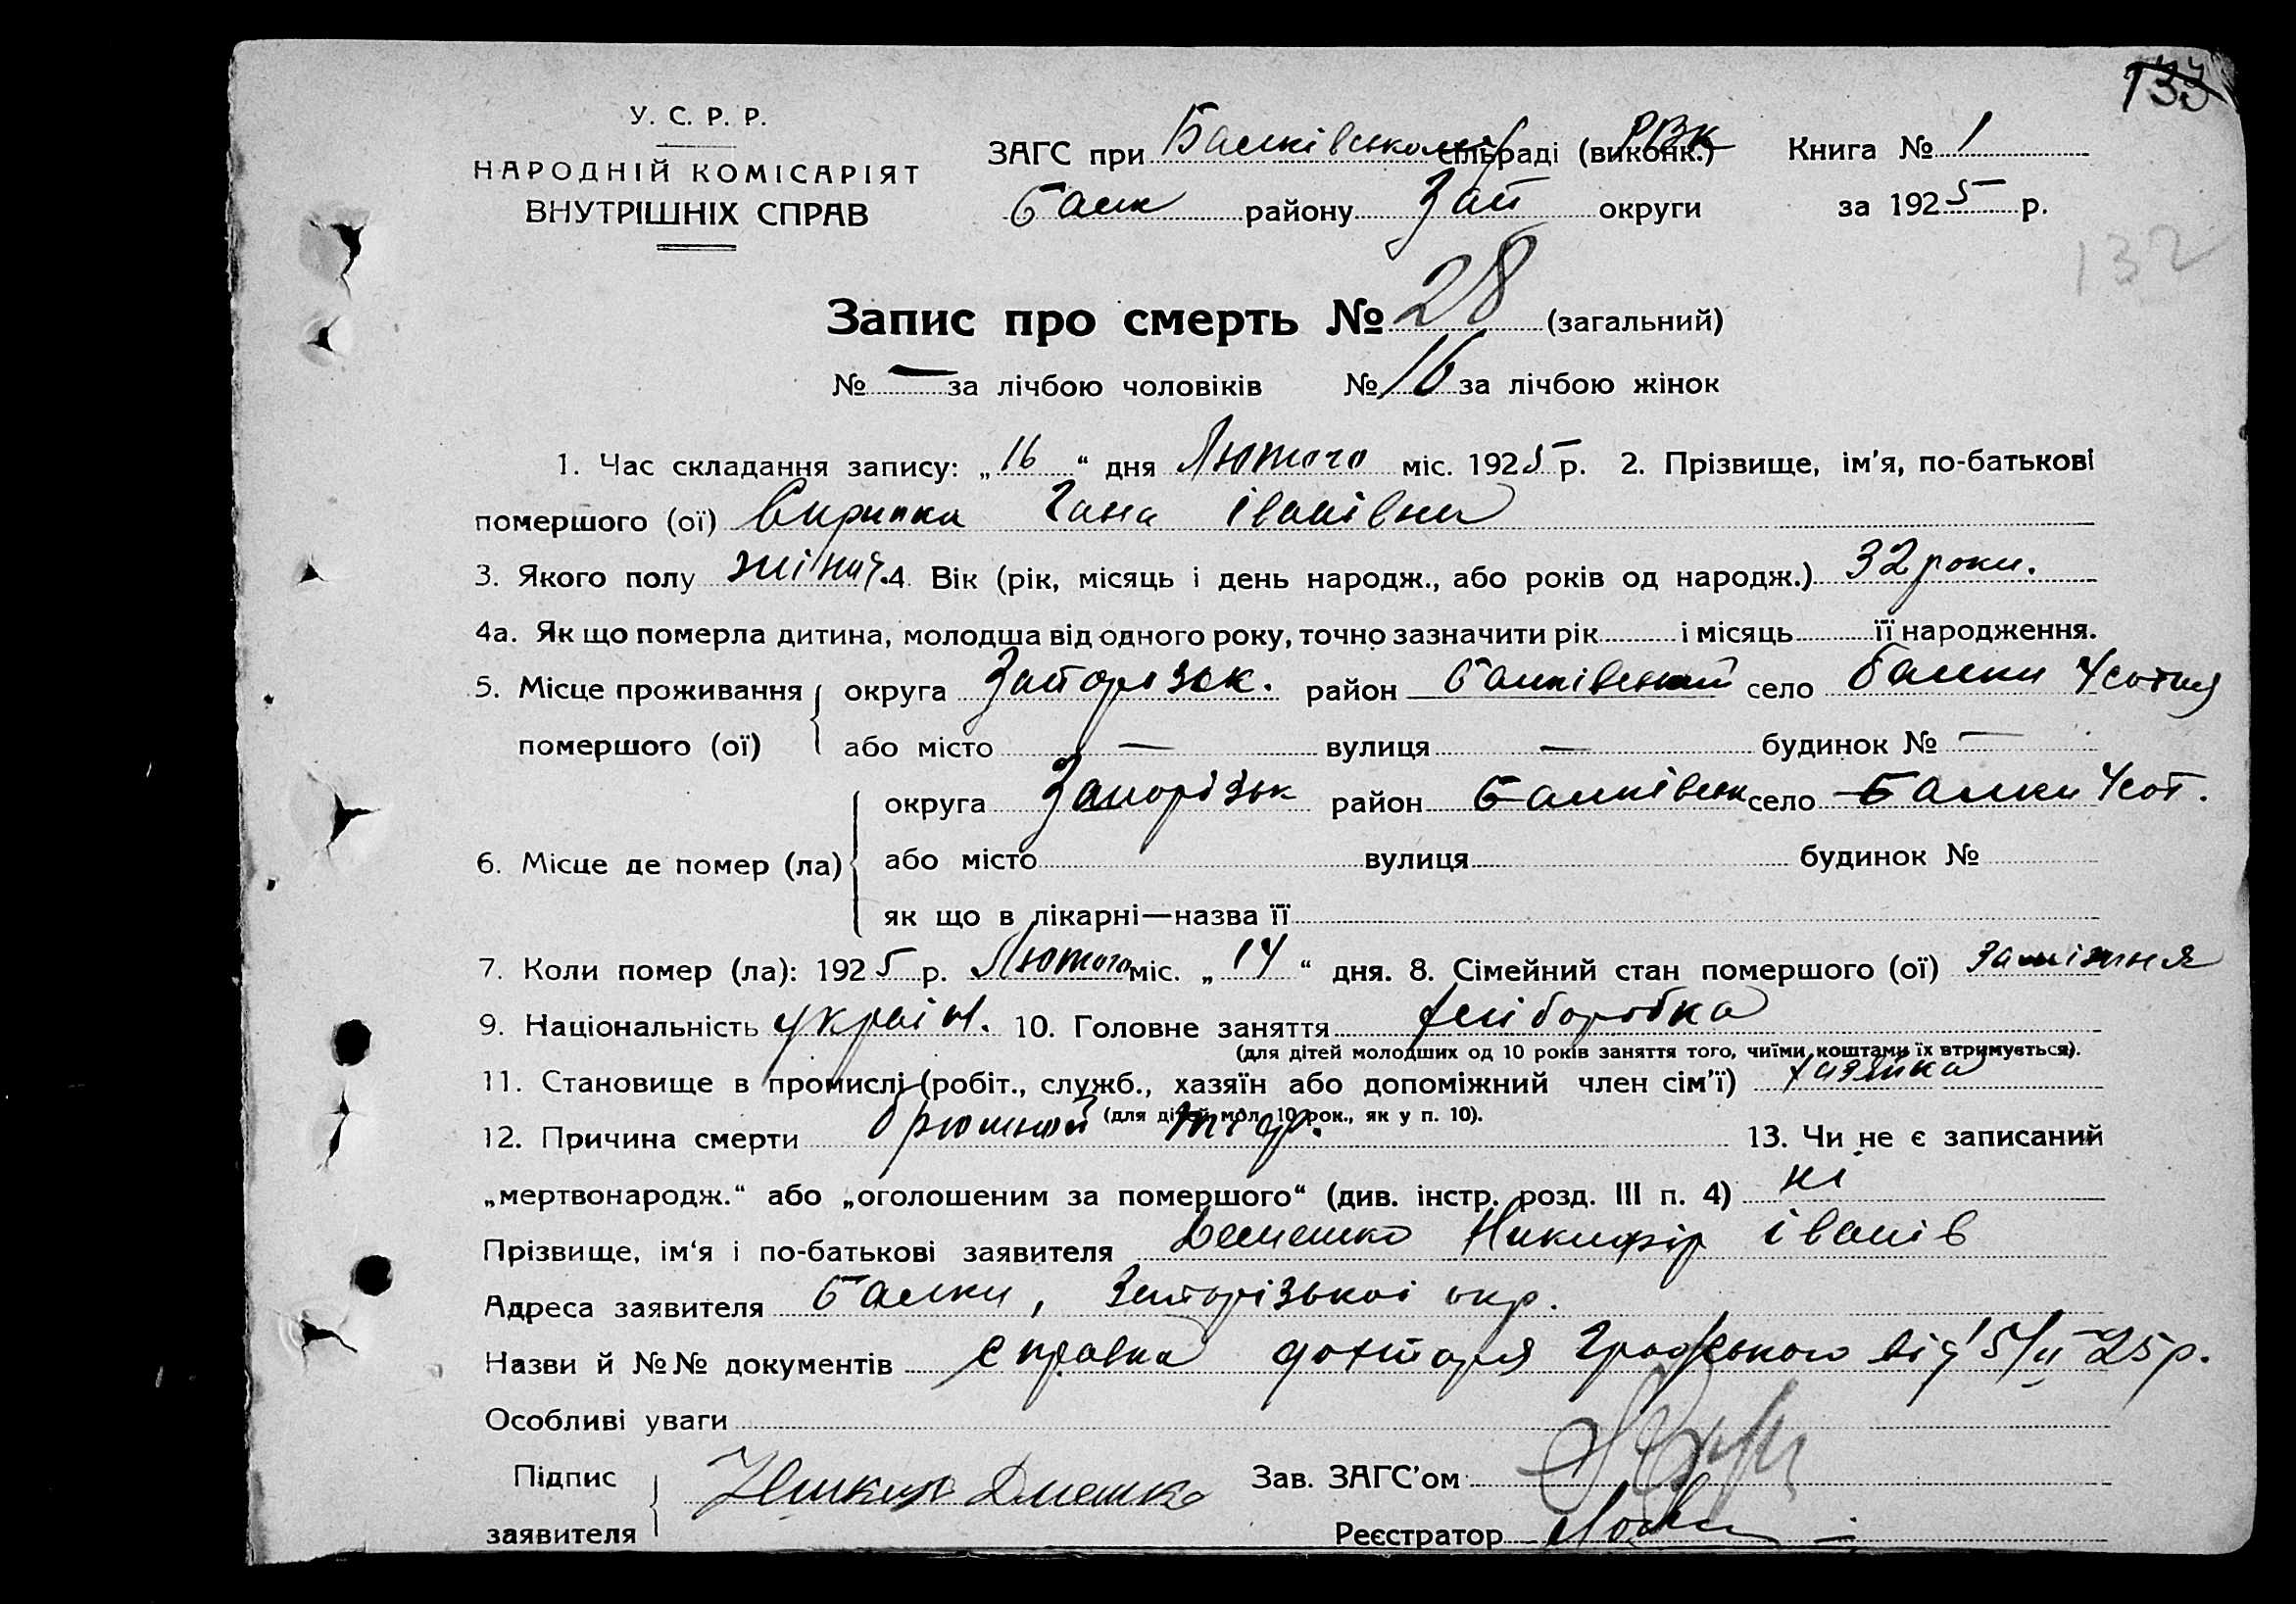 133
У. С. Р. Р.
НАРОДНІЙ КОМІСАРІЯТ
ВНУТРІШНІХ СПРАВ
ЗАГС при Балківському сільраді (виконк.) РВК Книга № 1
Балк району Зап округи за 1925 р.
132
Запис про смерть № 28 (загальний)
№ — за лічбою чоловіків № 16 за лічбою жінок
1. Час складання запису: „16“ дня Лютого міс. 1925 р. 2. Прізвище, ім'я, по-батькові
помершого (ої) Скрипка Гана Іванівна
3. Якого полу жіноч. 4. Вік (рік, місяць і день народж., або років од народж.) 32 роки.
4а. Як що померла дитина, молодша від одного року, точно зазначити рік і місяць її народження.
5. Місце проживання округа Запорізьк. район Балківський село Балки 4 сотня
помершого (ої) або місто — вулиця — будинок № —
округа Запорізьк район Балківськ село Балки 4 сот.
6. Місце де помер (ла) або місто вулиця будинок №
як що в лікарні—назва її
7. Коли помер (ла): 1925 р. Лютого міс. „14“ дня. 8. Сімейний стан помершого (ої) заміжня
9. Національність україн. 10. Головне заняття хліборобка
(для дітей молодших од 10 років заняття того, чиїми коштами їх втримується).
11. Становище в промислі (робіт., служб., хазяїн або допоміжний член сім'ї) хазяйка
(для дітей мол. 10 рок., як у п. 10).
12. Причина смерти брюшной тиф. 13. Чи не є записаний
„мертвонародж.“ або „оголошеним за помершого“ (див. інстр. розд. III п. 4) ні
Прізвище, ім'я і по-батькові заявителя Демешко Никифір Іванів
Адреса заявителя Балки, Запорізької окр.
Назви й №№ документів справка дохтаря від 15/II-25 р.
Особливі уваги
Підпис
заявителя
Зав. ЗАГС'ом
Реєстратор